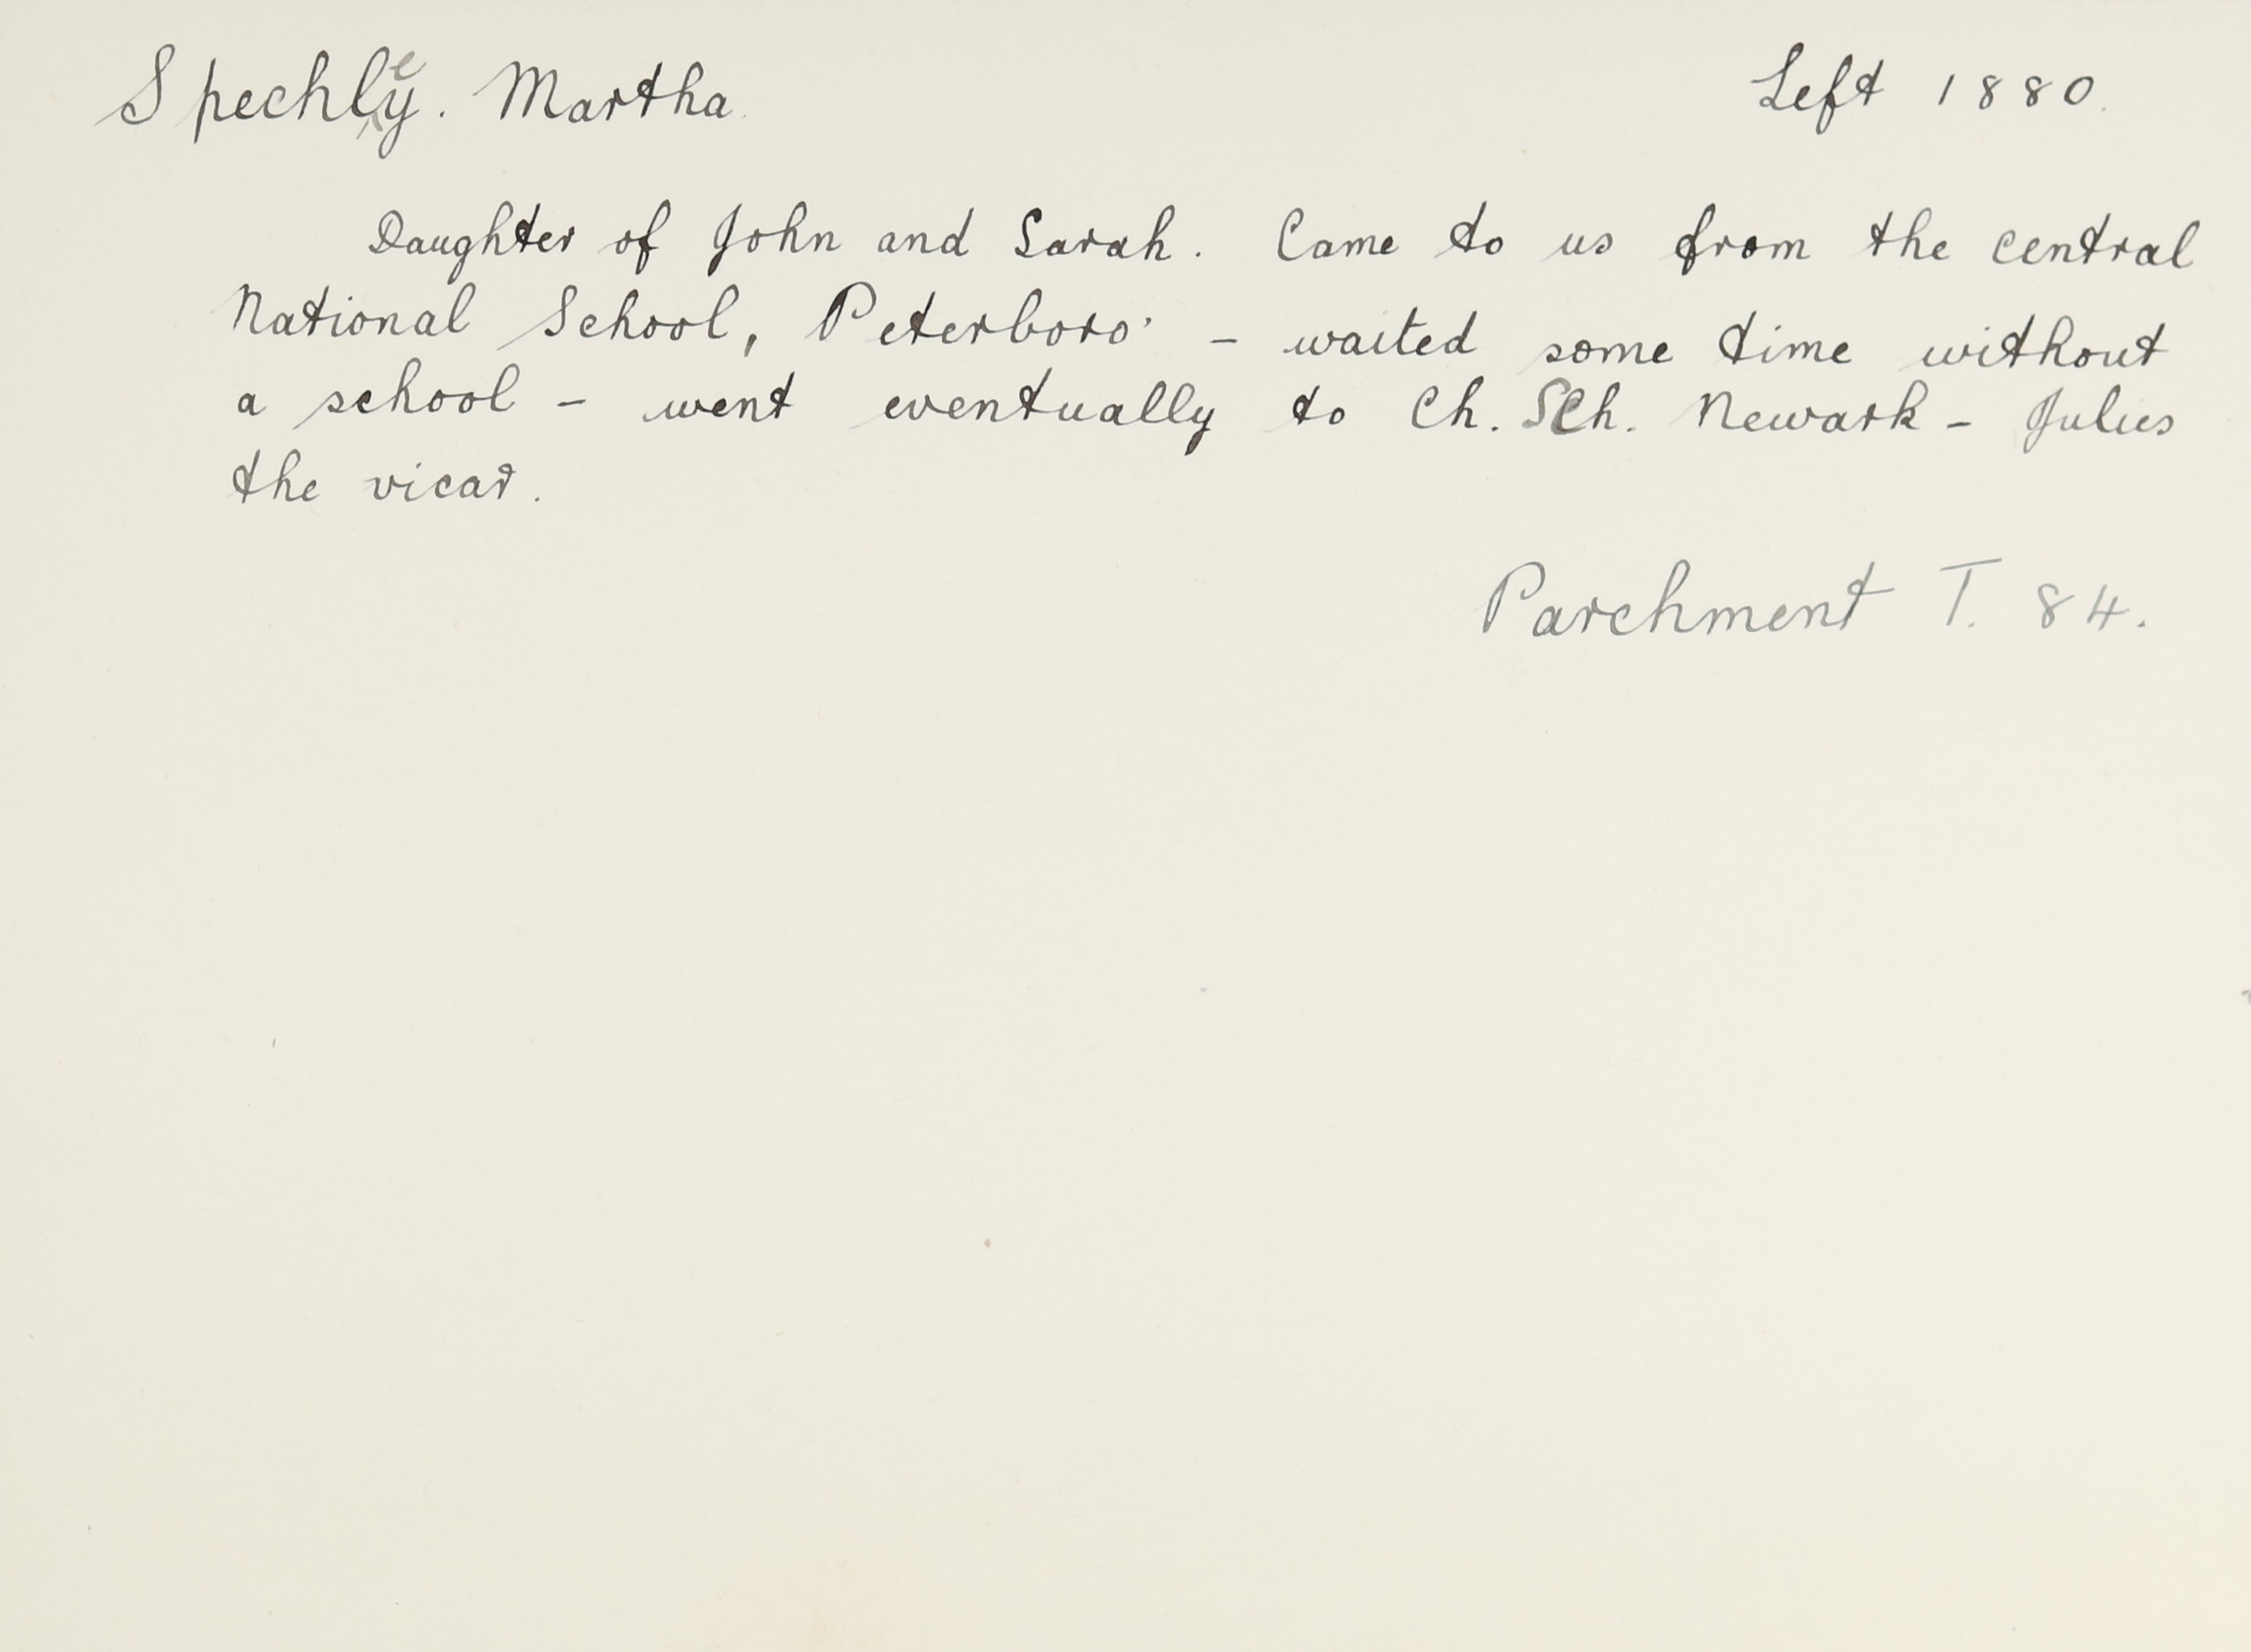 Spechley. Martha. Left 1880.
Daughter of John and Sarah. Came to us from the central
National School, Peterboro' - waited some time without
a school - went eventually to Ch. Sch. Newark - Julius
the vicar.
Parchment T. 84.